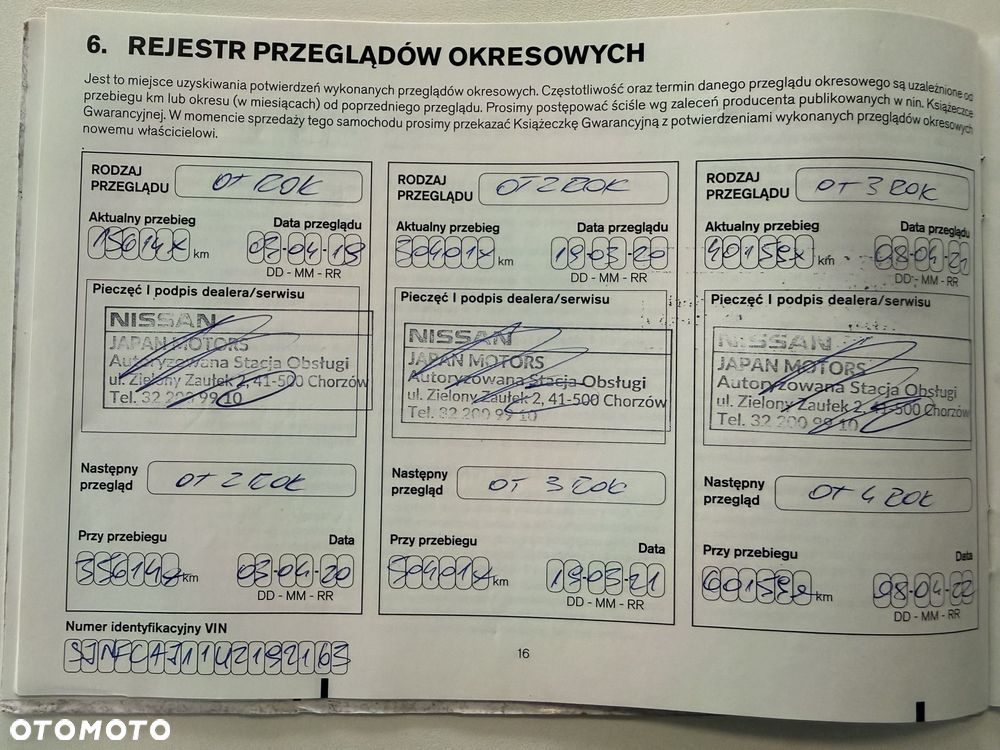 6. REJESTR PRZEGLĄDÓW OKRESOWYCH
Jest to miejsce uzyskiwania potwierdzeń wykonanych przeglądów okresowych. Częstotliwość oraz termin danego przeglądu okresowego są uzależnione od
przebiegu km lub okresu (w miesiącach) od poprzedniego przeglądu. Prosimy postępować ściśle wg zaleceń producenta publikowanych w nin. Książeczce
Gwarancyjnej. W momencie sprzedaży tego samochodu prosimy przekazać Książeczkę Gwarancyjną z potwierdzeniami wykonanych przeglądów okresowych
nowemu właścicielowi.
RODZAJ
PRZEGLĄDU
OT ROK
Aktualny przebieg
Data przeglądu
15614x km
03-04-19
DD - MM - RR
Pieczęć I podpis dealera/serwisu
NISSAN
JAPAN MOTORS
Autoryzowana Stacja Obsługi
ul. Zielony Zaułek 2, 41-500 Chorzów
Tel. 32 200 99 10
Następny
przegląd
OT 2 ROK
Przy przebiegu
Data
35614x km
03-04-20
DD - MM - RR
RODZAJ
PRZEGLĄDU
OT 2 ROK
Aktualny przebieg
Data przeglądu
30401x km
19-03-20
DD - MM - RR
Pieczęć I podpis dealera/serwisu
NISSAN
JAPAN MOTORS
Autoryzowana Stacja Obsługi
ul. Zielony Zaułek 2, 41-500 Chorzów
Tel. 32 200 99 10
Następny
przegląd
OT 3 ROK
Przy przebiegu
Data
50401x km
19-03-21
DD - MM - RR
RODZAJ
PRZEGLĄDU
OT 3 ROK
Aktualny przebieg
Data przeglądu
km
08-04-21
DD - MM - RR
Pieczęć I podpis dealera/serwisu
NISSAN
JAPAN MOTORS
Autoryzowana Stacja Obsługi
ul. Zielony Zaułek 2, 41-500 Chorzów
Tel. 32 200 99 10
Następny
przegląd
OT 4 ROK
Przy przebiegu
Data
km
08-04-22
DD - MM - RR
Numer identyfikacyjny VIN
SJNFCAJ11U2192163
16
OTOMOTO